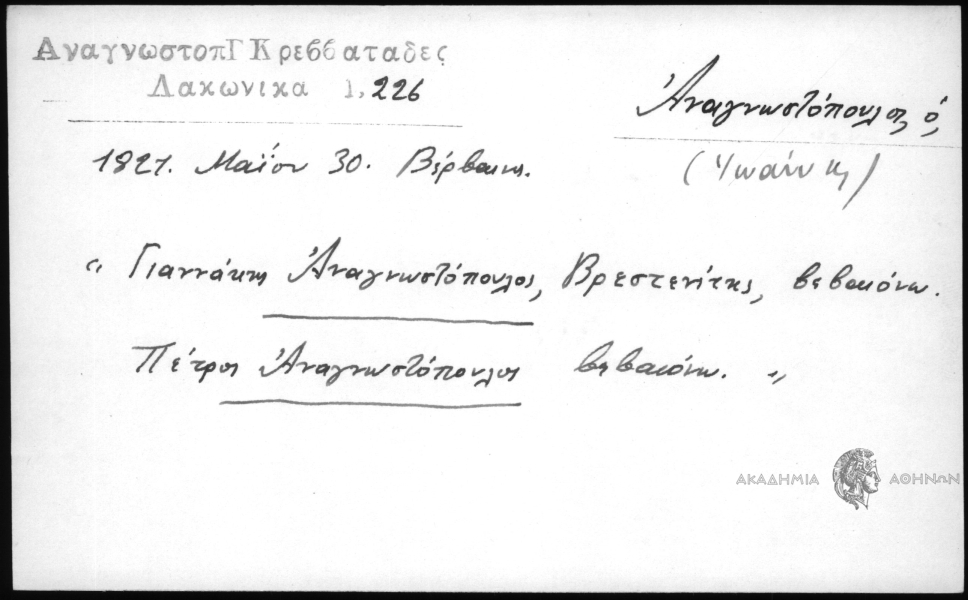 ΑναγνωστοπΓ Κρεββαταδες
Λακωνικα 1,226
Ἀναγνωστόπουλος, ὁ,
(Ἰωάννης)
1821. Μαΐου 30. Βέρβαινα.
" Γιαννάκης Ἀναγνωστόπουλος, Βρεστενίτης, βεβαιόνω.
Πέτρος Ἀναγνωστόπουλος βεβαιόνω. "
ΑΚΑΔΗΜΙΑ ΑΘΗΝΩΝ